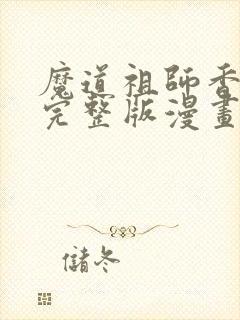 魔道祖師香
完整版漫畫
儲冬